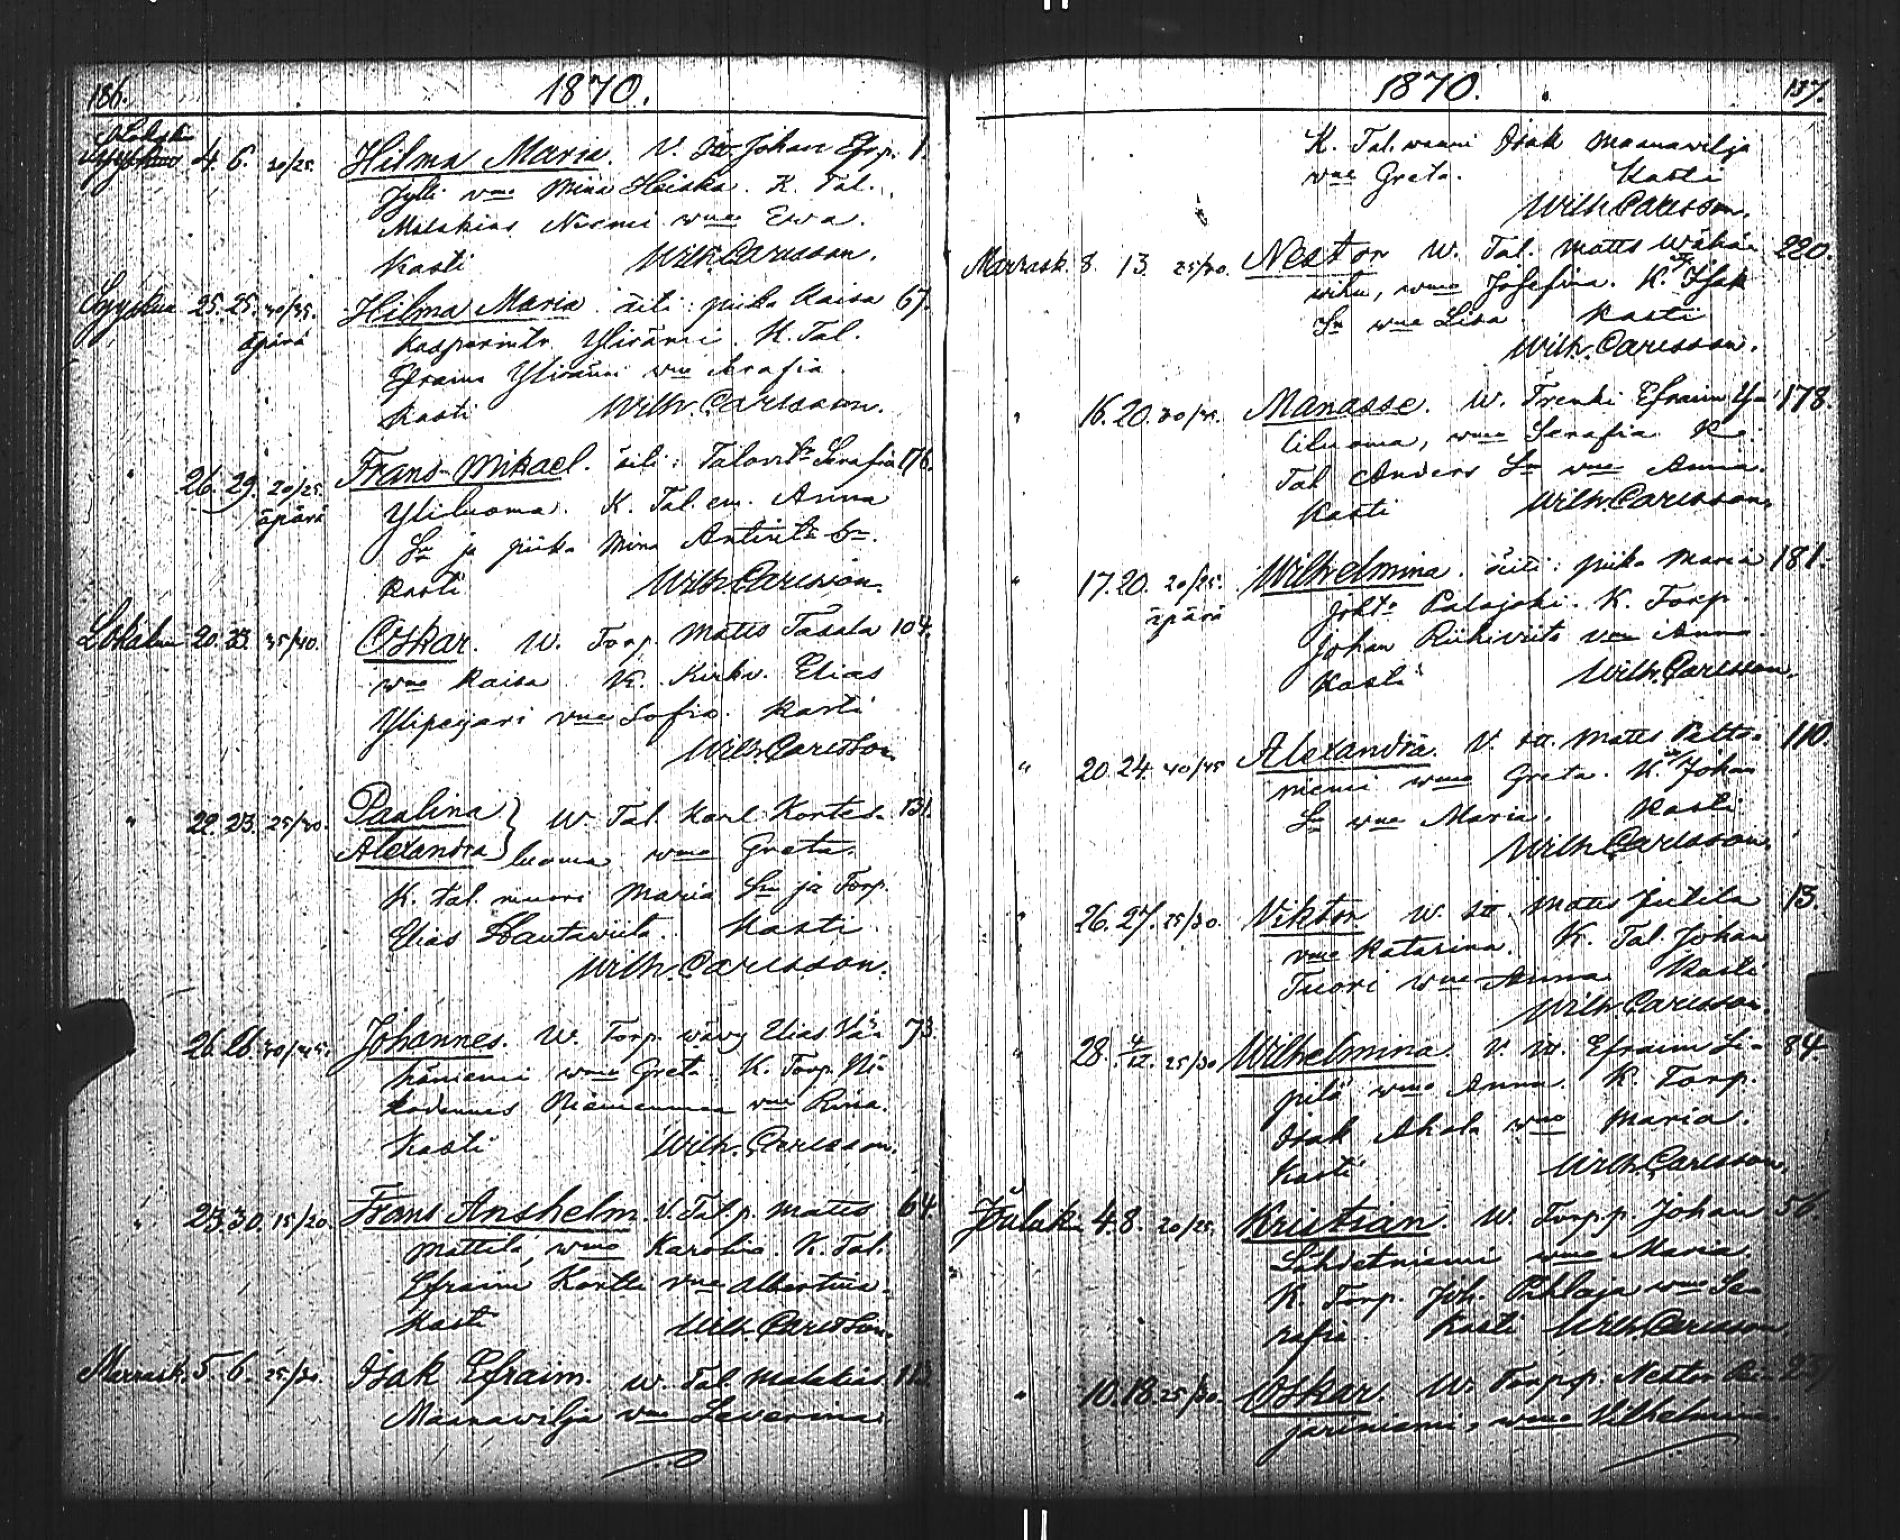 186. 1870.
4. 6. 20/25. Hilma Maria. V. Johan Efr.p. 1.
Jylli vmo Miina Heiska. K. Tal.
Malakias Niemi wmo Ewa.
Kasti Wilh. Carlsson.
Syyskuu 25. 25. 30/35. Hilma Maria äiti: piika Kaisa 67.
äpärä Kasperintr Ylirämi. K. Tal.
Efraim Ylirämi vmo Serafia.
Kasti Wilh. Carlsson.
" 26. 29. 20/25. Frans Mikael. äiti: Talontr Serafia 176.
äpärä Yliluoma. K. Tal. en. Anna
Sm ja piika Mina Antintr Sm.
Kasti Wilh. Carlsson.
Lokakuu 20. 23. 35/40. Oskar. W. Torp. Matts Tasala 104.
wmo Kaisa K. Kirkv. Elias
Ylipeijari vmo Sofia. Kasti
Wilh. Carlsson
" 22. 23. 25/30. Paulina W. Tal. Karl Kortes- 131.
Alexandra luoma wmo Greta.
K. tal. nuori Maria Sm ja Torp.
Elias Hautawiita. Kasti
Wilh. Carlsson.
" 26. 26. 40/45. Johannes. W. Torp. wäwy Elias Vä- 73.
häniemi wmo Greta. K. Torp. Ni-
kodemus Niemenmaa vmo Riina.
Kasti Wilh. Carlsson.
" 23. 30. 15/20. Frans Anshelm. V. Tal.p. Matts 64.
Mattila, wmo Karolia. K. Tal.
Efraim Kortti vmo Albertina.
Kasti Wilh. Carlsson.
Marrask. 5. 6. 25/30. Isak Efraim. W. Tal. Malakias 112
Maanawilja vmo Severina
1870. 137.
K. Tal. waari Isak Maanawilja
wmo Greta. Kasti
Wilh. Carlsson.
Marrask. 8. 13. 25/30. Nestor W. Tal. Matts Wähä- 220.
wiita, wmo Josefina. K. Isak
Sm wmo Lisa. Kasti
Wilh. Carlsson.
" 16. 20. 30/35. Manasse. W. Trenki Efraim Y- 178.
liluoma, wmo Serafia K.
Tal. Anders Sm wmo Anna.
Kasti Wilh. Carlsson.
" 17. 20. 20/25. Wilhelmina. äiti: piika Maria 181.
äpärä Johtr Palojoki. K. Torp.
Johan Riihiviita vmo Anna.
Kasti Wilh. Carlsson.
" 20. 24. 40/45 Alexandra. V. itt. Matts Pelto- 110.
niemi wmo Greta. K. Johan
Sm wmo Maria. Kasti
Wilh. Carlsson.
" 26. 27. 25/30. Viktor W. itt. Matts Jutila 13.
vmo Katarina. K. Tal. Johan
Tuori wmo Anna Kasti
Wilh. Carlsson.
" 28. 4/12. 25/30 Wilhelmina. V. itt. Efraim Si- 84
pilä wmo Anna. K. Torp.
Isak Ahola wmo Maria.
Kasti Wilh. Carlsson.
Joulak. 4. 8. 20/25. Kristian. W. Torp.p. Johan 56.
Lihdetniemi wmo Maria.
K. Torp. Joh. Pihlaja wmo Se-
rafia. Kasti Wilh. Carlsson.
" 10. 18. 25/30. Oskar. W. Torp.p. Nestor 237
jariniemi, wmo Wilhelmina.